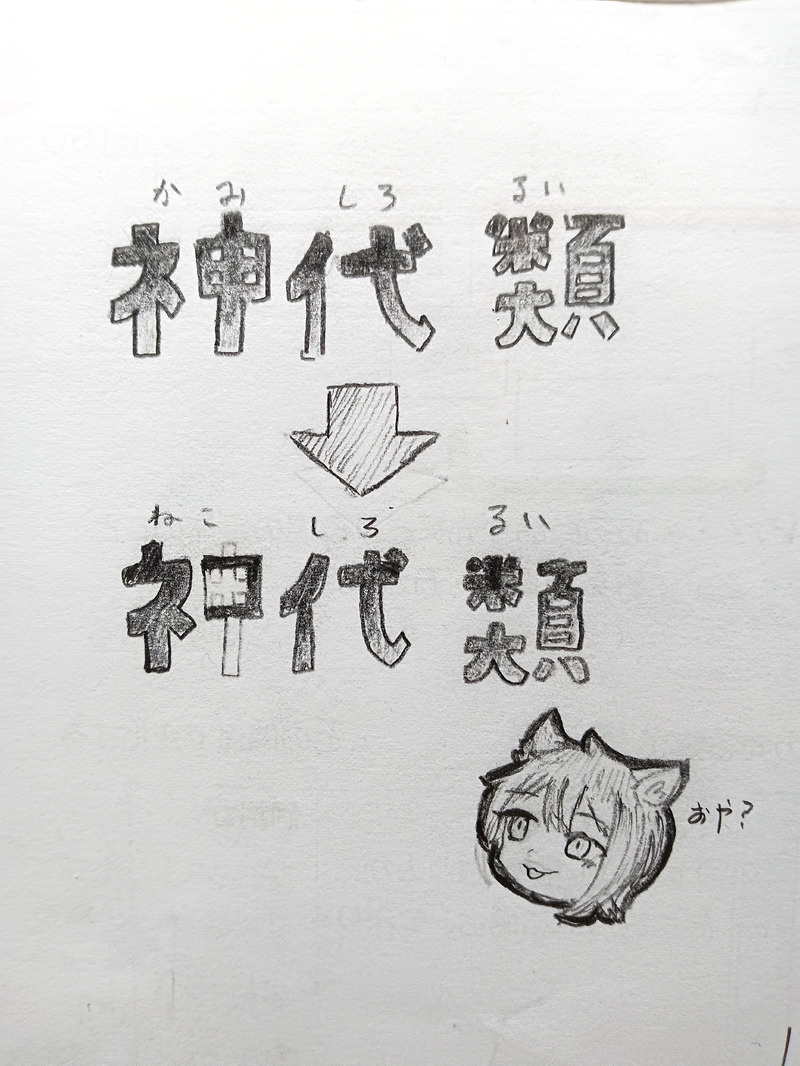 かみ しろ るい
神代 類
ねこ しろ るい
神代 類
おや?